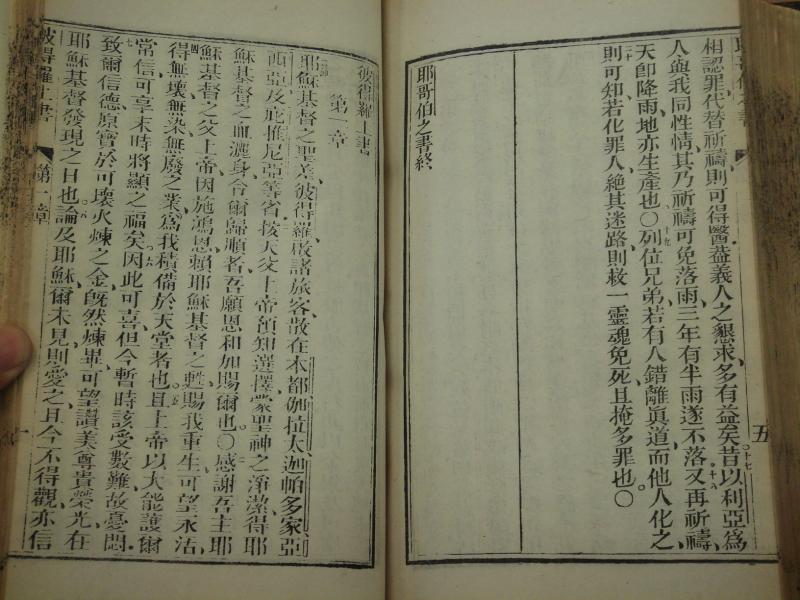 相認罪代替祈禱則可得醫蓋義人之懇求多有益矣十七昔以利亞爲
人與我同性情其乃祈禱可免落雨三年有半雨遂不落十八又再祈禱
天卽降雨地亦生產也〇十九列位兄弟若有人錯離眞道而他人化之
二十則可知若化罪人絕其迷路則救一靈魂免死且掩多罪也〇
耶哥伯之書終
五
彼得羅上書
第一章
耶穌基督之聖差彼得羅啟諸旅客散在本都伽拉太迦帕多家亞
西亞及庇推尼亞等省二按天父上帝預知選擇蒙聖神之淨潔得耶
穌基督之血灑身令爾歸順者吾願恩和加賜爾也〇三感謝吾主耶
穌基督之父上帝因施鴻恩賴耶穌基督之甦賜我重生可望永活
四得無壞無染無廢之業爲我積備於天堂者也五且上帝以大能護爾
常信可享末時將顯之福矣六因此可喜但今暫時該受數難故憂悶
七致爾信德原寶於可壞火煉之金旣然煉畢可望讚美尊貴榮光在
耶穌基督發現之日也八論及耶穌爾未見則愛之且今不得觀亦信
彼得羅上書 第一章 一